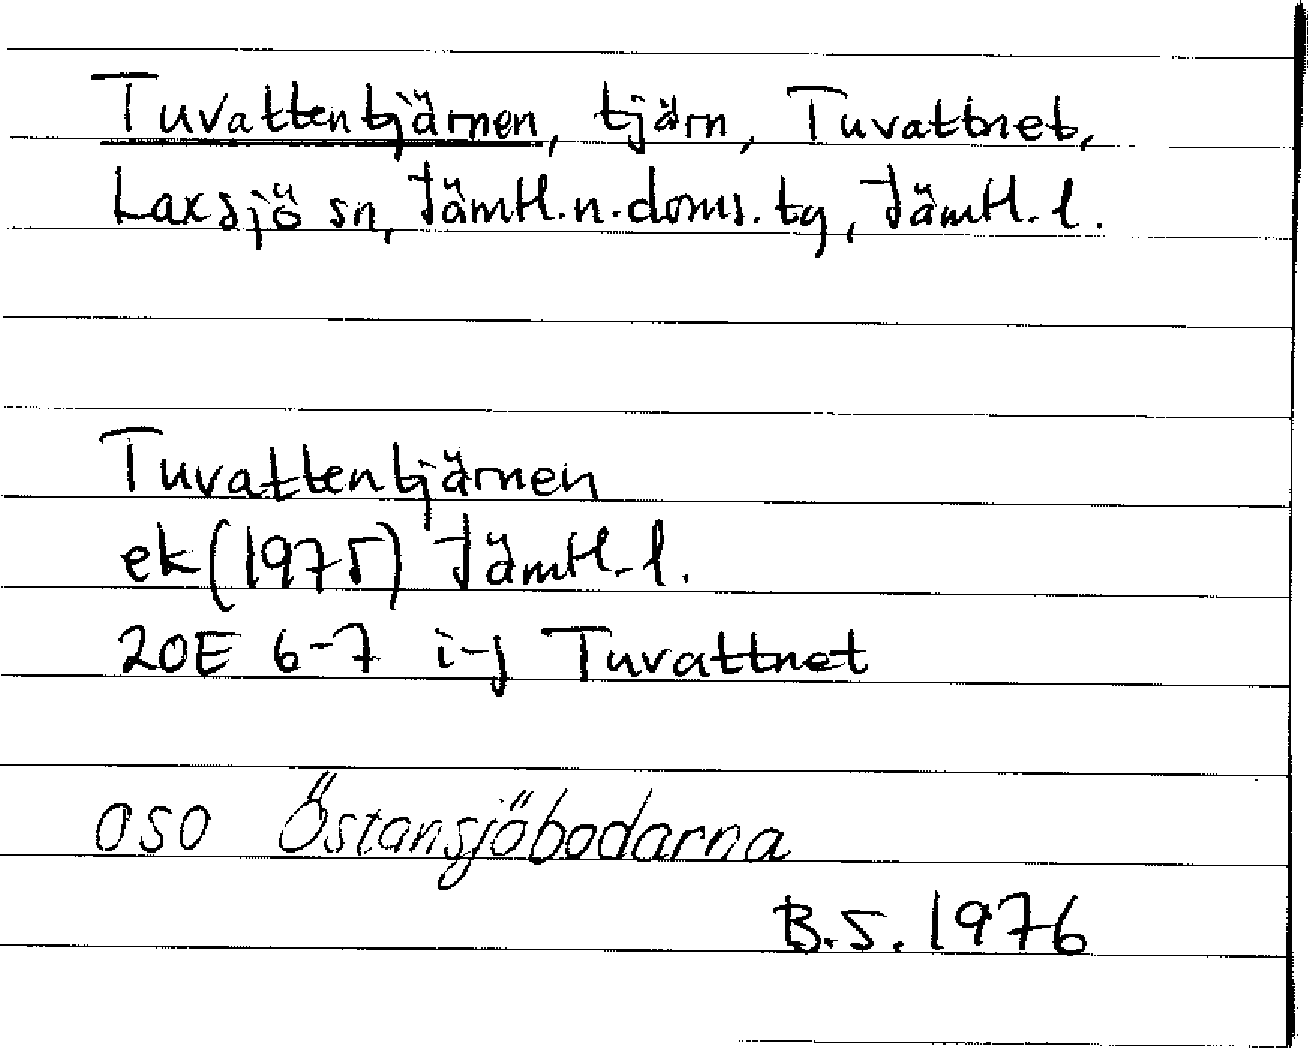 Tuvattentjärnen, tjärn, Tuvattnet,
Laxsjö sn, Jämtl. n. doms. tg, Jämtl. l.
Tuvattentjärnen
ek (1975) Jämtl. l.
20E 6-7 i-j Tuvattnet
OSO Östansjöbodarna
B.S. 1976